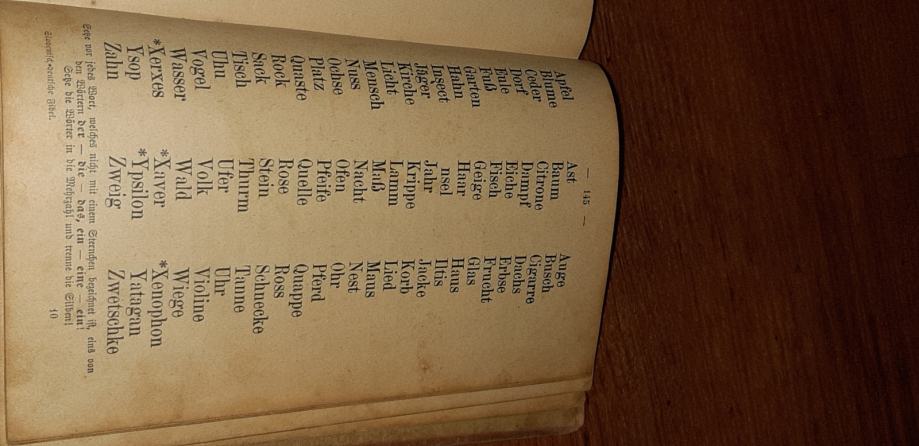 — 145 —
Apfel Ast Auge
Blume Baum Busch
Ceder Citrone Cigarre
Dorf Dampf Dachs
Eule Eiche Erbse
Fuß Fisch Frucht
Garten Geige Glas
Hahn Haar Haus
Insect Insel Iltis
Jäger Jahr Jacke
Kirche Krippe Korb
Licht Lamm Lied
Mensch Maß Maus
Nuss Nacht Nest
Ochse Ofen Ohr
Platz Pfeife Pferd
Quaste Quelle Quappe
Rock Rose Ross
Sack Stein Schnecke
Tisch Thurm Tanne
Uhu Ufer Uhr
Vogel Volk Violine
Wasser Wald Wiege
*Xerxes *Xaver *Xenophon
Ysop *Ypsilon Yatagan
Zahn Zweig Zwetschke
Setze vor jedes Wort, welches nicht mit einem Sternchen bezeichnet ist, eins von
den Wörtern der — die — das, ein — eine — ein!
Setze die Wörter in die Mehrzahl und trenne die Silben!
Slovenisch-deutsche Fibel. 10